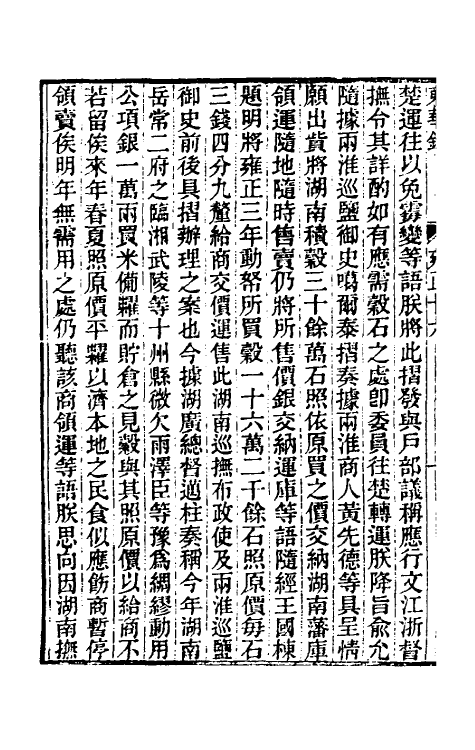 楚運往以免霉變等語朕將此摺發與戶部議稱應行文江浙督
撫令其詳酌如有應需穀石之處卽委員往楚轉運朕降旨俞允
隨據兩淮巡鹽御史噶爾泰摺奏據兩淮商人黃先德等具呈情
願出貲將湖南積穀三十餘萬石照依原買之價交納湖南藩庫
領運隨地隨時售賣仍將所售價銀交納運庫等語隨經王國棟
題明將雍正三年動帑所買穀一十六萬二千餘石照原價每石
三錢四分九釐給商交價運售此湖南巡撫布政使及兩淮巡鹽
御史前後具摺辦理之案也今據湖廣總督邁柱奏稱今年湖南
岳常二府之臨湘武陵等十州縣微欠雨澤臣等豫爲綢繆動用
公項銀一萬兩買米備糶而貯倉之見穀與其照原價以給商不
若留俟來年春夏照原價平糶以濟本地之民食似應飭商暫停
領賣俟明年無需用之處仍聽該商領運等語朕思向因湖南撫